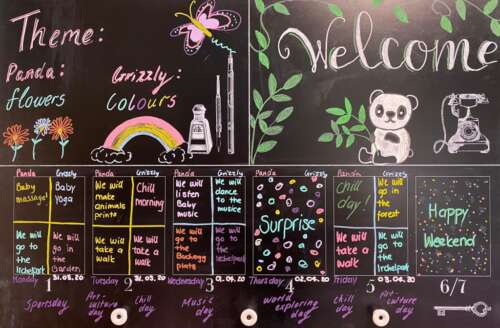 Theme:
Panda:
flowers
Grizzly:
Colours
Welcome
Panda Grizzly
Baby massage!
Baby Yoga
We will go to the Irchelpark
We will go in the Garden
Monday 1 30.03.20
Sportsday
Panda Grizzly
We will make animals prints
Chill morning
We will take a walk
We will take a walk
Tuesday 2 31.03.20
Art-culture day
Chill day
Panda Grizzly
We will listen Baby music
We will dance to the musice
We will go to the Bachegg
We will go to the Irchelpark
Wednesday 3 01.04.20
Music day
Panda Grizzly
Surprise
Thursday 4 02.04.20
World exploring day
Panda Grizzly
chill day!
We will go in the forest
We will take a walk
We will go to the Irchelpark
Friday 5 03.04.20
chill day
Art-culture day
Happy Weekend
6/7